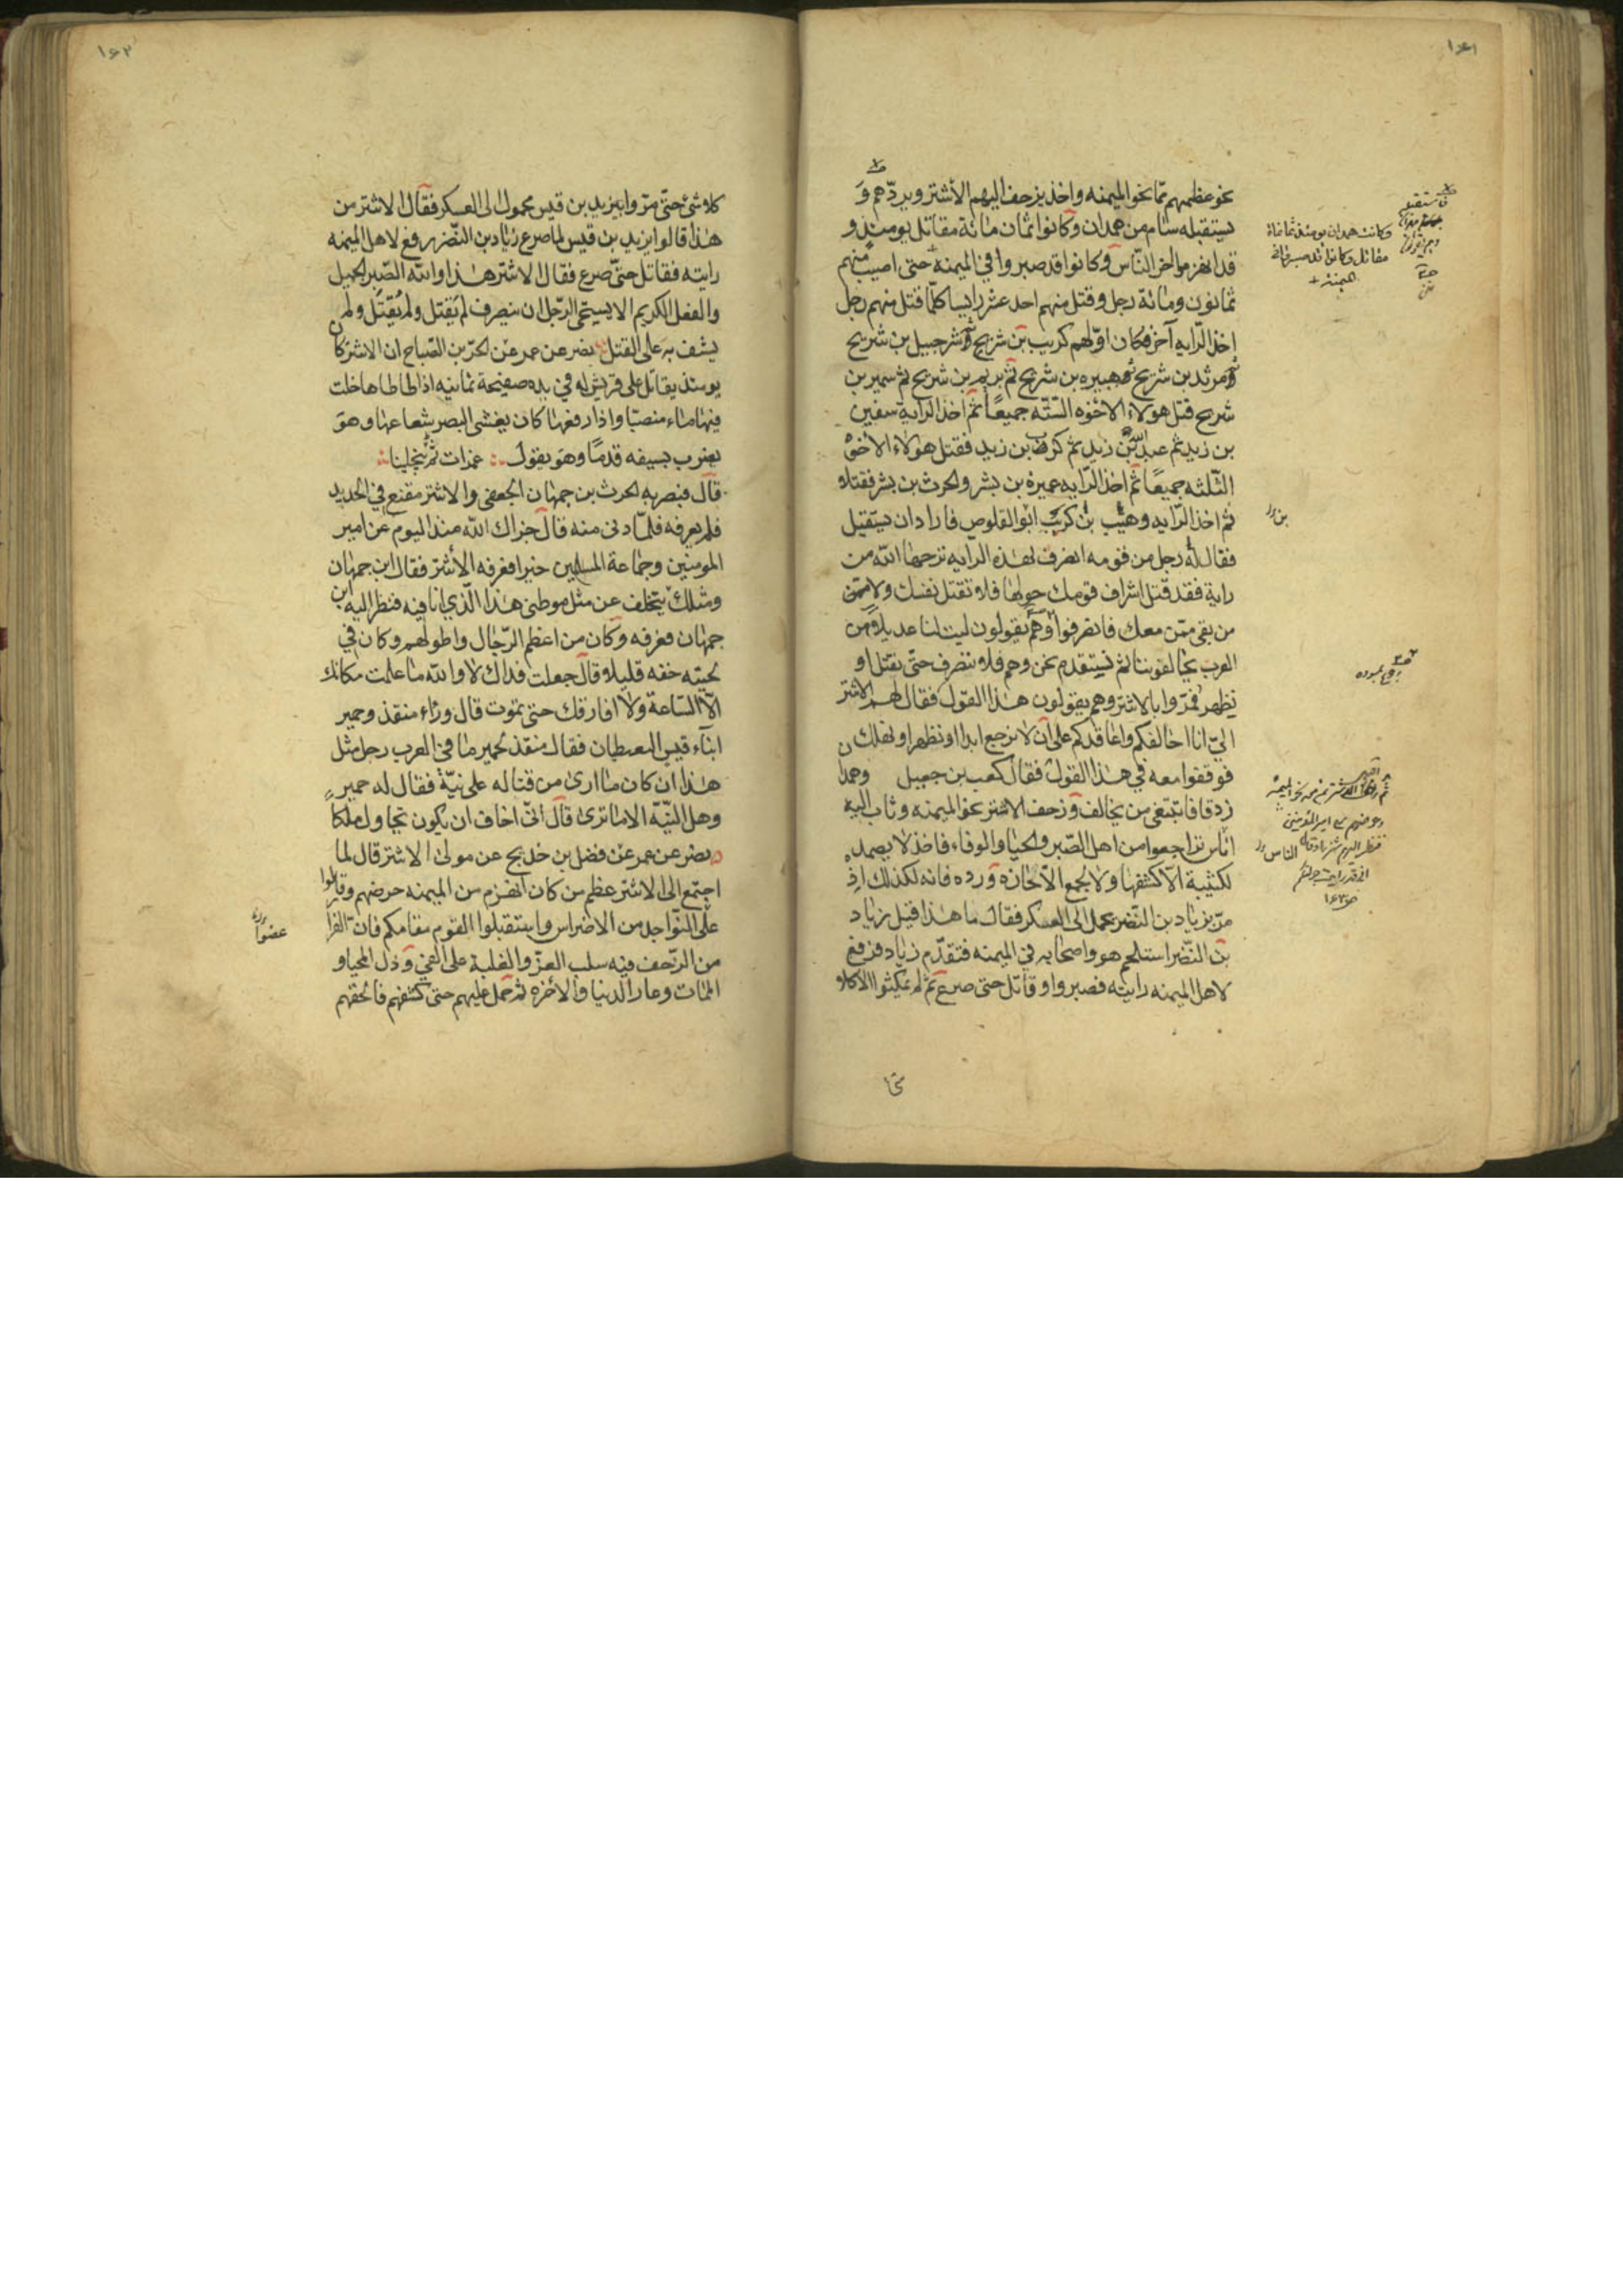 ١٤١
نحو عظمهم مما نحو الميمنه واخذ يزحف اليهم الأشتر ويردّهم وَ
يستقبله سنام من همدان وكانوا ثمان مائة مقاتل يومئذ و
قد انهزموا اخر النّاس وكانوا قد صبروا في الميمنه حتى اصيب منهم
ثمانون ومائة رجل وقتل منهم احد عشر رايسا كلّما قتل منهم رجل
اخذ الرّايه آخر فكان اوّلهم كريب بن شريح ثم شرحبيل بن شريح
ثم مرثد بن شريح ثم هبيره بن شريح ثم يريم بن شريح ثم سمير بن
شريح قتل هولاء الاخوه الستّه جميعًا ثم اخذ الراية سفين
بن زيد ثم عبد الله بن زيد ثم كرب بن زيد فقتل هولاء الاخوة
الثّلثه جميعًا ثم اخذ الرّايه عميرة بن بشر والحرث بن بشر فقتلا
ثم اخذ الرّايه وهيب بن كريب ابو القلوص فاراد ان يستقبل
فقال له رجل من قومه انصرف بهذه الرايه ترحها الله من
راية فقد قتل اشراف قومك حولها فلا تقتل نفسك ولا من
من بقى ممّن معك فانصرفوا وهم يقولون ليت لنا عديلا من
العرب يحالفوننا ثم نستقدم نحن وهم فلا ننصرف حتّى نقتل او
نظهر فمرّوا بالاشتر وهم يقولون هذا القول فقال لهم الاشتر
اليّ انا احالفكم واعاقدكم على ان لا نرجع ابدا او نظهر او نهلك
فوقفوا معه في هذا القول فقال كعب بن جعيل وهمدان
زرقا تبتغى من يحالف وزحف الاشتر نحو الميمنه وثاب اليه
اناس تراجعوا من اهل الصّبر والحيا والوفاء فاخذ لا يصمد
لكتيبة الّا كشفها ولا لجمع الّا حازه ورده فانه لكذلك اذ
مرّ بزياد بن النّضر يحمل الى العسكر فقال ما هذا قيل زياد
بن النّضر استلحم هو واصحابه في الميمنه فتقدّم زياد فرفع
لاهل الميمنه رايته فصبروا وقاتل حتى صرع ثم لم يمكثوا الا كلا
وكانت همدان يومئذ ثمانمائة
الميمنة
بن
ثم
امير المؤمنين
الناس
١٤٢
كلا شئ حتّى مرّوا بيزيد بن قيس محمولا الى العسكر فقال الاشتر من
هذا قالوا يزيد بن قيس لما صرع زياد بن النّضر رفع لاهل الميمنه
رايته فقاتل حتّى صرع فقال الاشتر هذا والله الصّبر الجميل
والفعل الكريم الا يستحى الرّجل ان ينصرف لم يَقتل ولم يُقتل ولم
يشف به على القتل نصر عن عمر عن الحرّ بن الصّباح ان الاشتر كان
يومئذ يقاتل على فرس له في يده صفيحة يمانيه اذا طاطاها خلت
فيها ماء منصبّا واذا رفعها كان يغشى البصر شعاعها وهو
يضرب بسيفه قدمًا وهو يقول غمرات ثم ينجلينا
قال فبصر به الحرث بن جمهان الجعفى والاشتر مقنع في الحديد
فلم يعرفه فلمّا دنى منه قال جزاك الله منذ اليوم عن امير
المومنين وجماعة المسلمين خيرا فعرفه الأشتر فقال ابن جمهان
ومثلك يتخلف عن مثل موطنى هذا الّذي انا فيه فنظر اليه ابن
جمهان فعرفه وكان من اعظم الرّجال واطولهم وكان في
لحيته خفه قليلا وقال جعلت فداك لا والله ما علمت مكانك
الّا السّاعة ولا افارقك حتى نموت قال وراه منقذ وحمير
ابناء قيس اليعطيان فقال منقذ لحمير ما في العرب رجل مثل
هذا ان كان ما ارى من قتاله على نيّة فقال له حمير
وهل النيّة الا ما ترى قال انّى اخاف ان يكون يحاول ملكا
نصر عن عمر عن فضل بن خديج عن مولى الاشتر قال لما
اجتمع الى الاشتر عظم من كان انهزم من الميمنه حرضهم وقال
على النّواجذ من الاضراس واستقبلوا القوم بهامكم فان الفرار
من الزّحف فيه سلب العزّ والغلبة على الفئ وذل المحيا و
الممات وعار الدنيا والاخره ثم حمل عليهم حتى كشفهم فالحقهم
عضوا